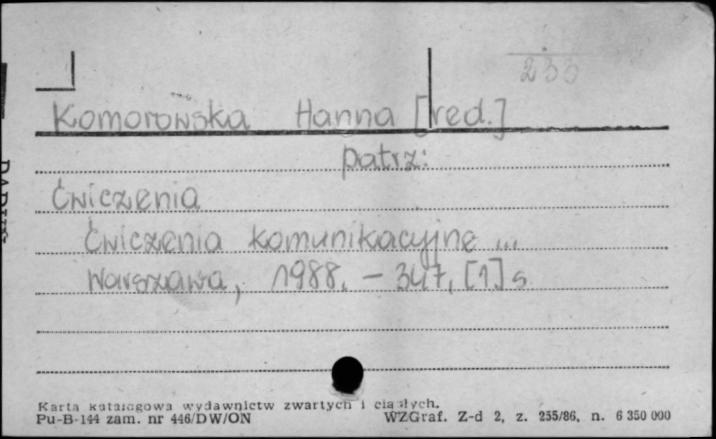 233
Komorowska Hanna [red.]
patrz:
Ćwiczenia
Ćwiczenia komunikacyjne ...
Warszawa, 1988. – 347, [1] s
Karta katalogowa wydawnictw zwartych i ciągłych.
Pu-B-144 zam. nr 446/DW/ON WZGraf. Z-d 2, z. 255/86, n. 6 350 000